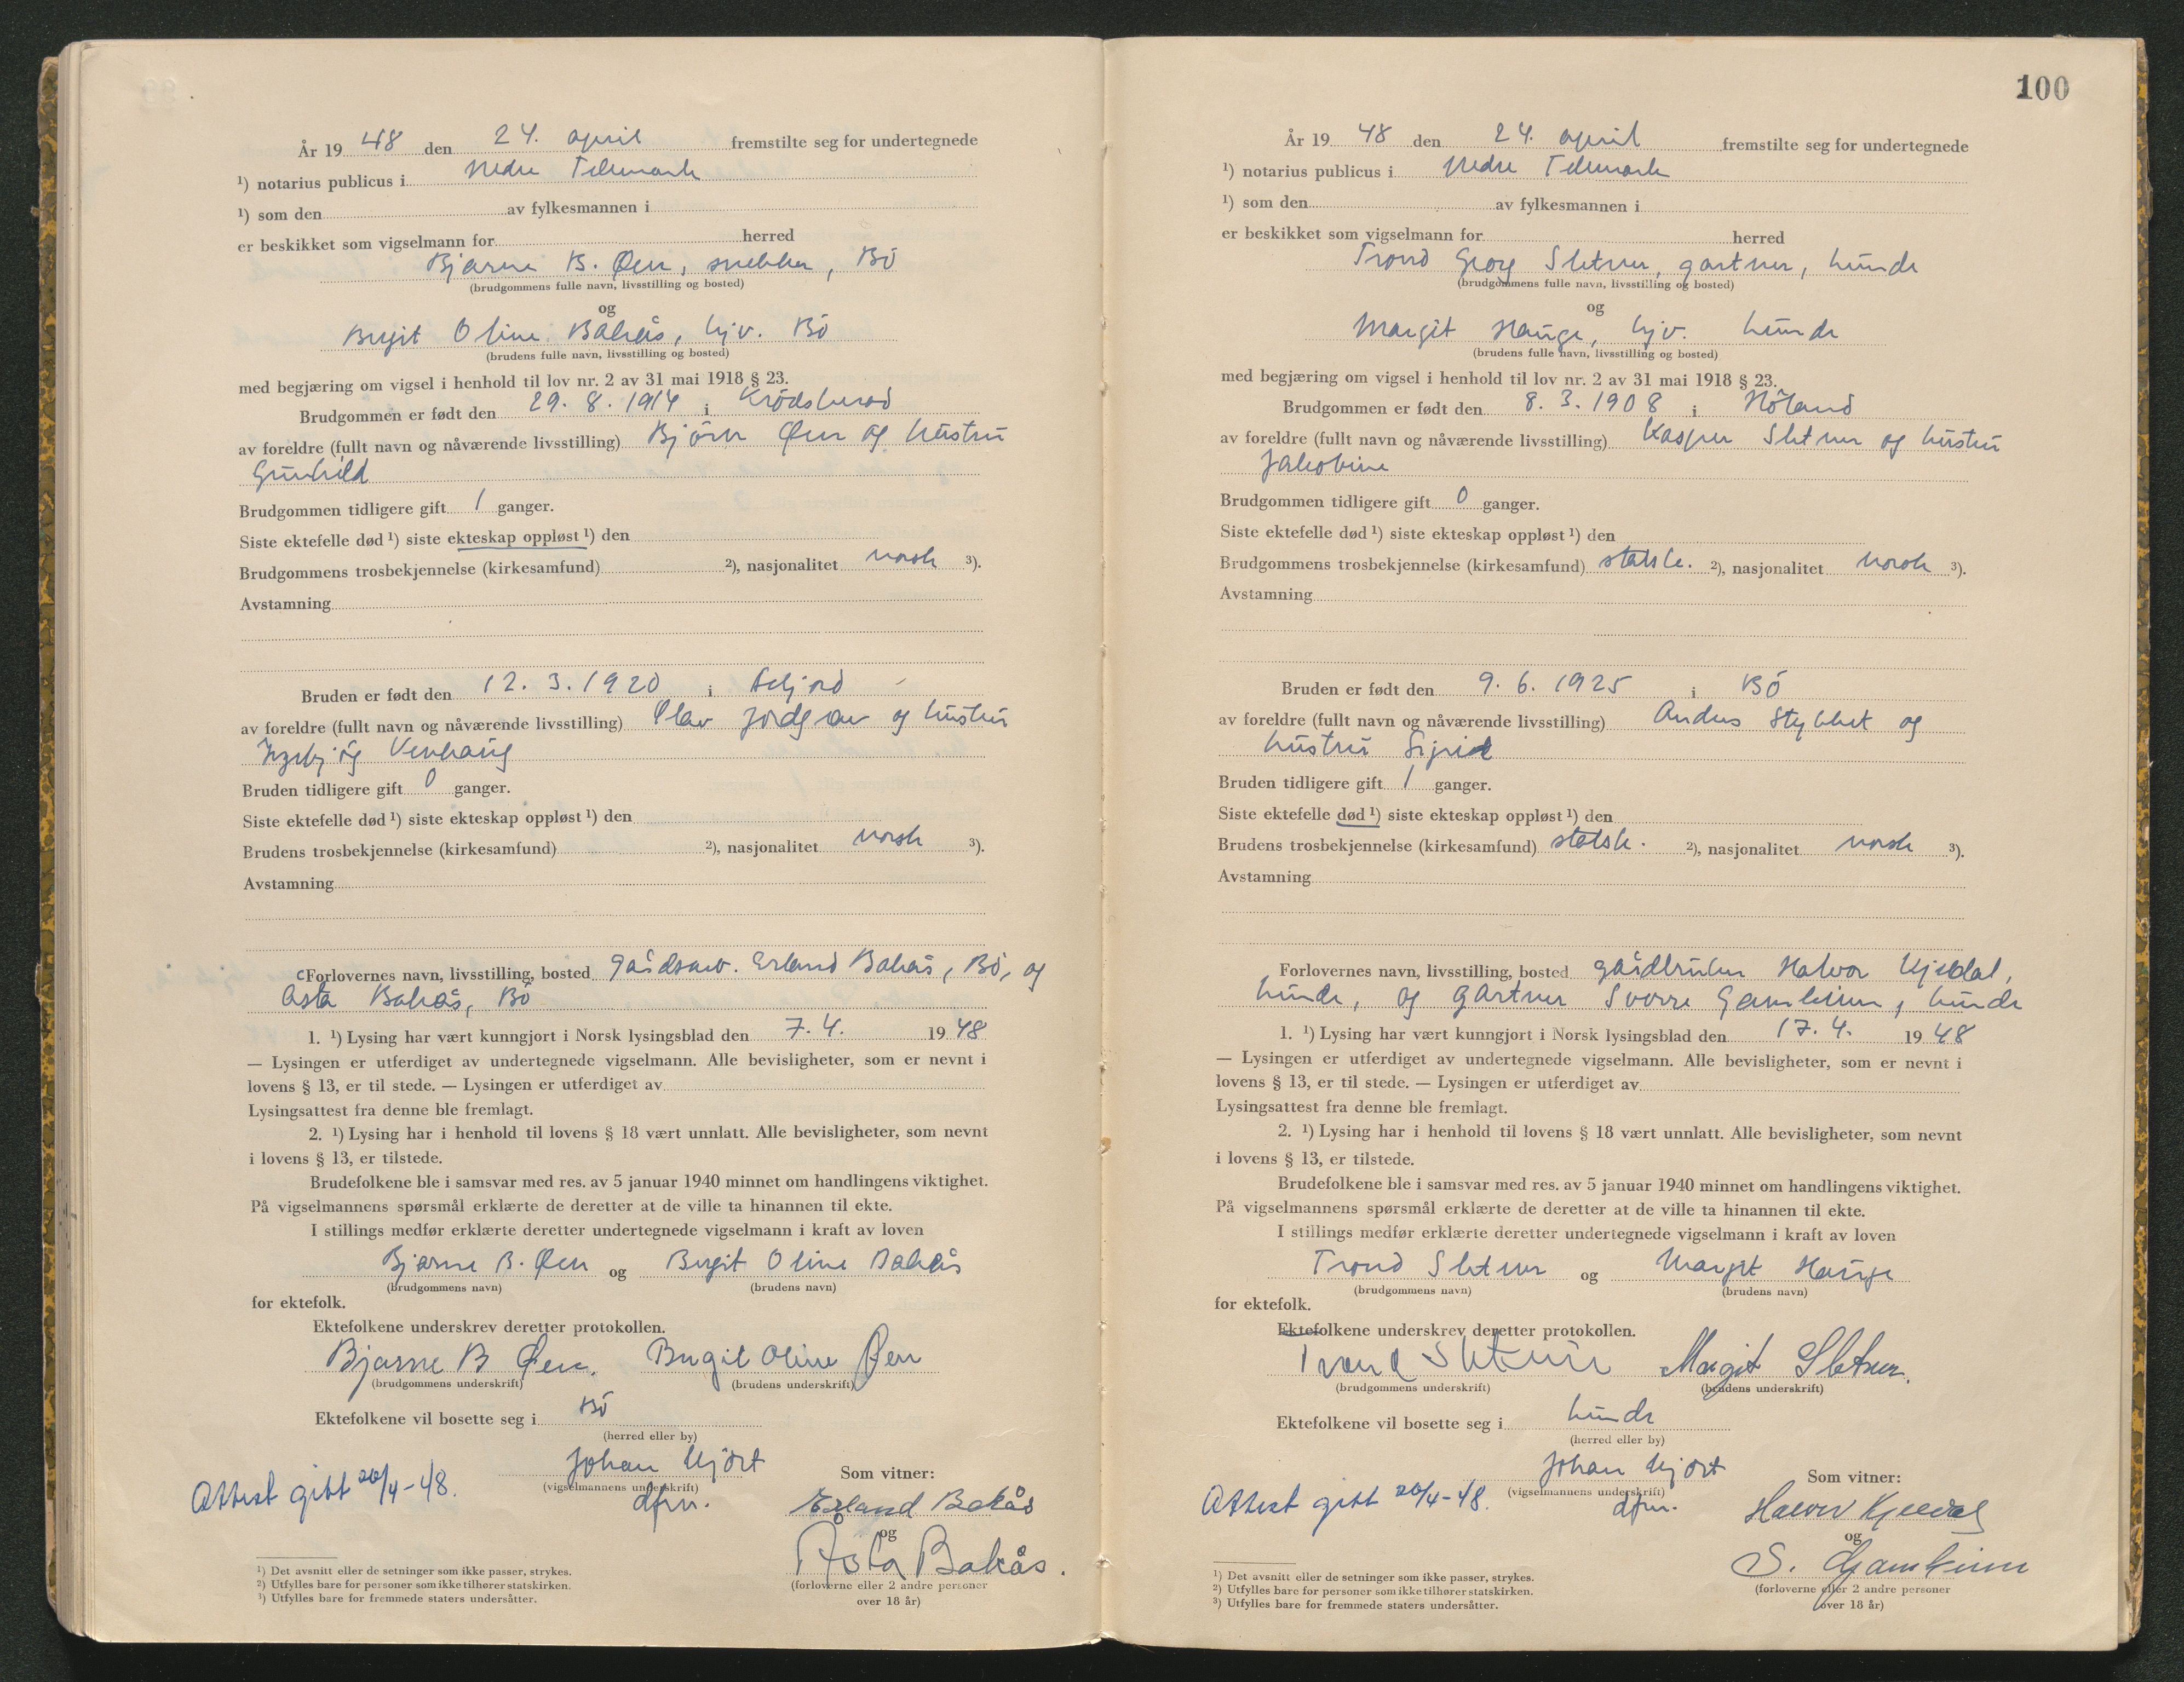 År 19 48 den 24. april fremstilte seg for undertegnede
¹) notarius publicus i Nedre Telemark
¹) som den av fylkesmannen i
er beskikket som vigselmann for herred
Bjarne B. Øen, snekker, Bö
(brudgommens fulle navn, livsstilling og bosted)
og
Birgit Oline Bakås, hjv. Bö
(brudens fulle navn, livsstilling og bosted)
med begjæring om vigsel i henhold til lov nr. 2 av 31 mai 1918 § 23.
Brudgommen er født den 29. 8. 1914 i Krödsherad
av foreldre (fullt navn og nåværende livsstilling) Björn Øen og hustru
Gunhild
Brudgommen tidligere gift 1 ganger.
Siste ektefelle død ¹) siste ekteskap oppløst ¹) den
Brudgommens trosbekjennelse (kirkesamfund) ²), nasjonalitet norsk ³).
Avstamning
Bruden er født den 12. 3. 1920 i Seljord
av foreldre (fullt navn og nåværende livsstilling) Olav og hustru
Ingebjörg Venhaug
Bruden tidligere gift 0 ganger.
Siste ektefelle død ¹) siste ekteskap oppløst ¹) den
Brudens trosbekjennelse (kirkesamfund) ²), nasjonalitet norsk ³).
Avstamning
Forlovernes navn, livsstilling, bosted gårdsarb. Erland Bakås, Bö, og
Asta Bakås, Bö
1. ¹) Lysing har vært kunngjort i Norsk lysingsblad den 7. 4. 19 48
— Lysingen er utferdiget av undertegnede vigselmann. Alle bevisligheter, som er nevnt i
lovens § 13, er til stede. — Lysingen er utferdiget av
Lysingsattest fra denne ble fremlagt.
2. ¹) Lysing har i henhold til lovens § 18 vært unnlatt. Alle bevisligheter, som nevnt
i lovens § 13, er tilstede.
Brudefolkene ble i samsvar med res. av 5 januar 1940 minnet om handlingens viktighet.
På vigselmannens spørsmål erklærte de deretter at de ville ta hinannen til ekte.
I stillings medfør erklærte deretter undertegnede vigselmann i kraft av loven
Bjarne B. Øen og Birgit Oline Bakås
(brudgommens navn) (brudens navn)
for ektefolk.
Ektefolkene underskrev deretter protokollen.
Bjarne B Øen. Birgit Oline Øen
(brudgommens underskrift) (brudens underskrift)
Ektefolkene vil bosette seg i Bö
(herred eller by)
Johan Hjort
(vigselmannens underskrift)
dfm.
Attest gitt 26/4-48.
Som vitner:
Erland Bakås
og
Åsta Bakås.
(forloverne eller 2 andre personer
over 18 år)
¹) Det avsnitt eller de setninger som ikke passer, strykes.
²) Utfylles bare for personer som ikke tilhører statskirken.
³) Utfylles bare for fremmede staters undersåtter.
100
År 19 48 den 24. april fremstilte seg for undertegnede
¹) notarius publicus i Nedre Telemark
¹) som den av fylkesmannen i
er beskikket som vigselmann for herred
Trond Georg Sletner, gartner, Lunde
(brudgommens fulle navn, livsstilling og bosted)
og
Margit Hauge, hjv. Lunde
(brudens fulle navn, livsstilling og bosted)
med begjæring om vigsel i henhold til lov nr. 2 av 31 mai 1918 § 23.
Brudgommen er født den 8. 3. 1908 i Höland
av foreldre (fullt navn og nåværende livsstilling) Kasper Sletner og hustru
Jakobine
Brudgommen tidligere gift 0 ganger.
Siste ektefelle død ¹) siste ekteskap oppløst ¹) den
Brudgommens trosbekjennelse (kirkesamfund) statsk. ²), nasjonalitet norsk ³).
Avstamning
Bruden er født den 9. 6. 1925 i Bö
av foreldre (fullt navn og nåværende livsstilling) Anders og
hustru Sigrid
Bruden tidligere gift 1 ganger.
Siste ektefelle død ¹) siste ekteskap oppløst ¹) den
Brudens trosbekjennelse (kirkesamfund) statsk. ²), nasjonalitet norsk ³).
Avstamning
Forlovernes navn, livsstilling, bosted gårdbruker Halvor Kjeldal,
Lunde, og gartner Sverre Gamkinn, Lunde
1. ¹) Lysing har vært kunngjort i Norsk lysingsblad den 17. 4. 19 48
— Lysingen er utferdiget av undertegnede vigselmann. Alle bevisligheter, som er nevnt i
lovens § 13, er til stede. — Lysingen er utferdiget av
Lysingsattest fra denne ble fremlagt.
2. ¹) Lysing har i henhold til lovens § 18 vært unnlatt. Alle bevisligheter, som nevnt
i lovens § 13, er tilstede.
Brudefolkene ble i samsvar med res. av 5 januar 1940 minnet om handlingens viktighet.
På vigselmannens spørsmål erklærte de deretter at de ville ta hinannen til ekte.
I stillings medfør erklærte deretter undertegnede vigselmann i kraft av loven
Trond Sletner og Margit Hauge
(brudgommens navn) (brudens navn)
for ektefolk.
Ektefolkene underskrev deretter protokollen.
Trond Sletner Margit Sletner.
(brudgommens underskrift) (brudens underskrift)
Ektefolkene vil bosette seg i Lunde
(herred eller by)
Johan Hjort
(vigselmannens underskrift)
dfm.
Attest gitt 26/4-48.
Som vitner:
Halvor Kjeldal
og
S. Gamkinn
(forloverne eller 2 andre personer
over 18 år)
¹) Det avsnitt eller de setninger som ikke passer, strykes.
²) Utfylles bare for personer som ikke tilhører statskirken.
³) Utfylles bare for fremmede staters undersåtter.